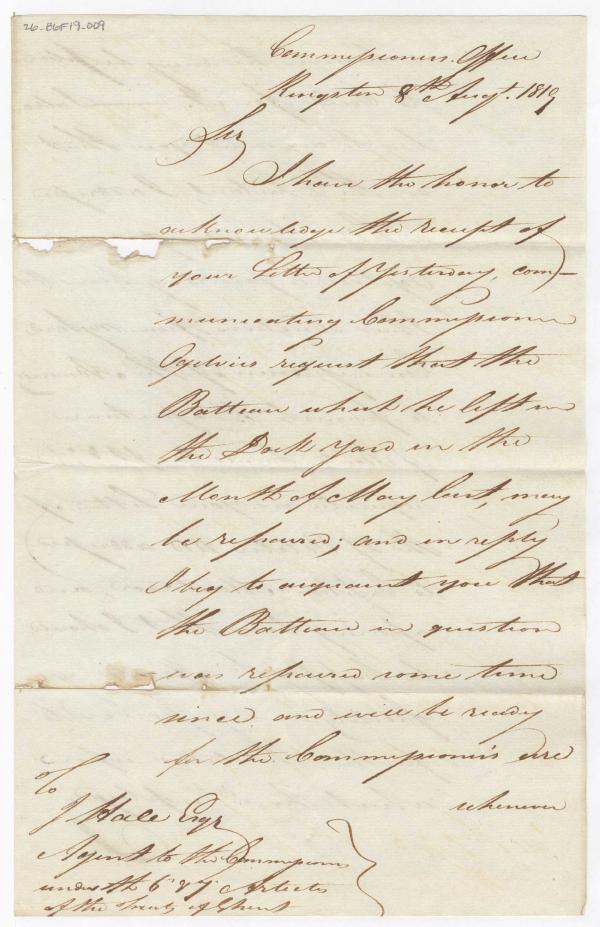 26-B6F19-009
Commissioners Office
Kingston 8th Augt. 1819
Sir
I have the honor to
acknowledge the receipt of
your Letter of Yesterday, com-
municating Commissioner
Ogilvies request that the
Batteau which he left in
the Dock Yard in the
Month of May last, may
be repaired; and in reply
I beg to acquaint you that
the Batteau in question
was repaired some time
since and will be ready
for the Commissioner's use
whenever
To
J Hale Esqr
Agent to the Commission
under the 6th & 7th Articles
of the Treaty of Ghent